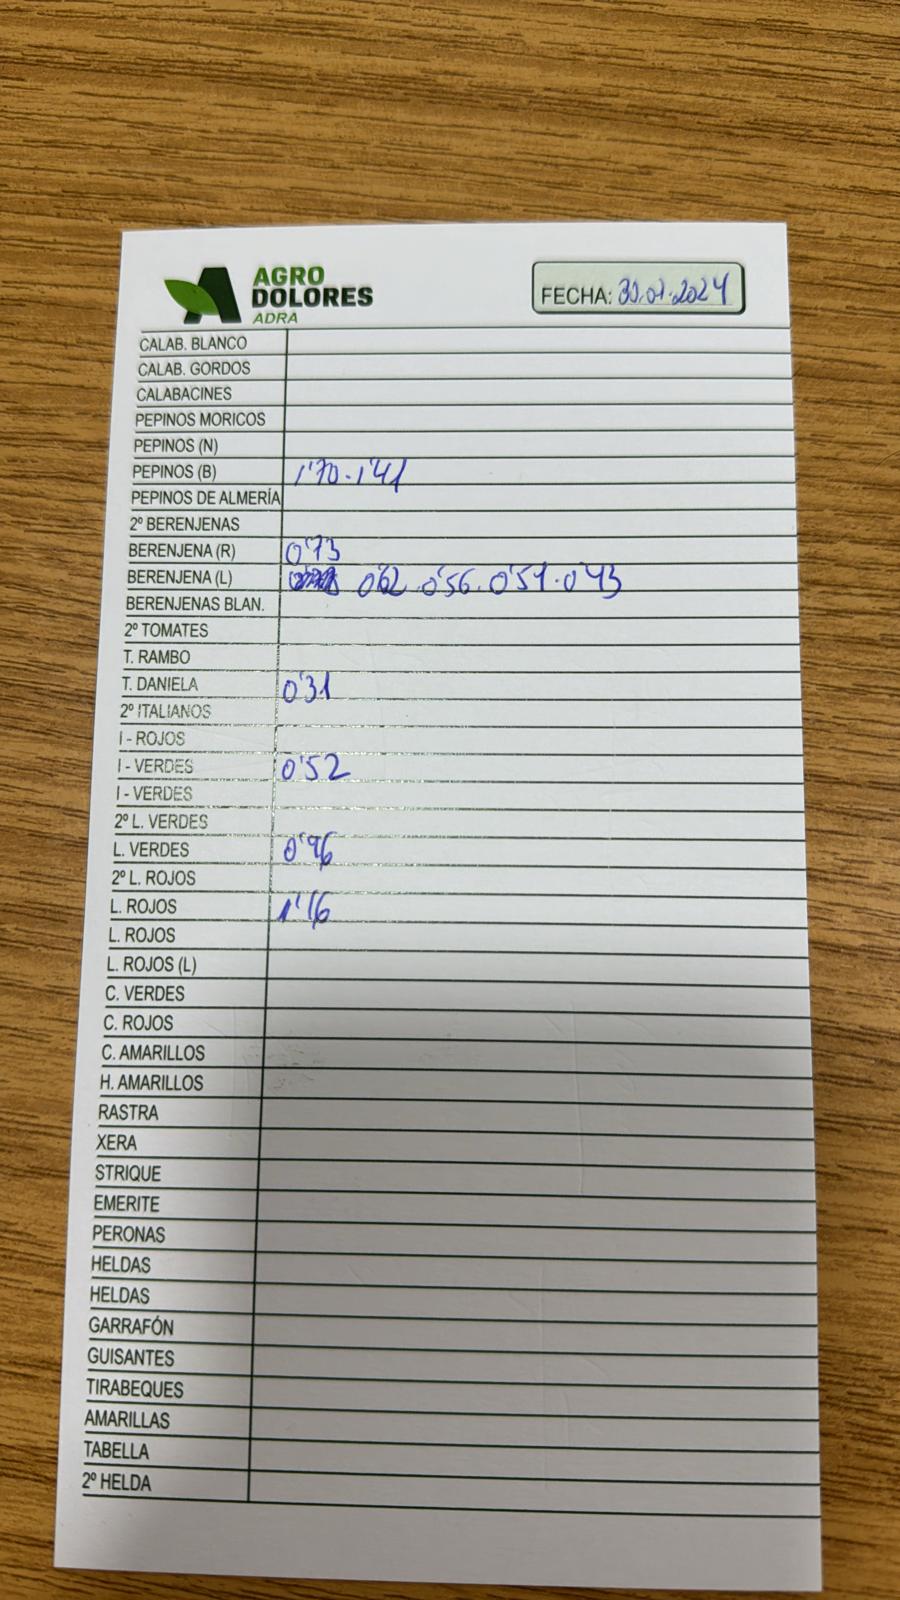 AGRO
DOLORES
ADRA
FECHA: 30.01.2024
CALAB. BLANCO
CALAB. GORDOS
CALABACINES
PEPINOS MORICOS
PEPINOS (N)
PEPINOS (B) 1'70.1'41
PEPINOS DE ALMERÍA
2º BERENJENAS
BERENJENA (R) 0'73
BERENJENA (L) 0'62.0'56.0'51.0'43
BERENJENAS BLAN.
2º TOMATES
T. RAMBO
T. DANIELA 0'31
2º ITALIANOS
I - ROJOS
I - VERDES 0'52
I - VERDES
2º L. VERDES
L. VERDES 0'96
2º L. ROJOS
L. ROJOS 1'16
L. ROJOS
L. ROJOS (L)
C. VERDES
C. ROJOS
C. AMARILLOS
H. AMARILLOS
RASTRA
XERA
STRIQUE
EMERITE
PERONAS
HELDAS
HELDAS
GARRAFÓN
GUISANTES
TIRABEQUES
AMARILLAS
TABELLA
2º HELDA